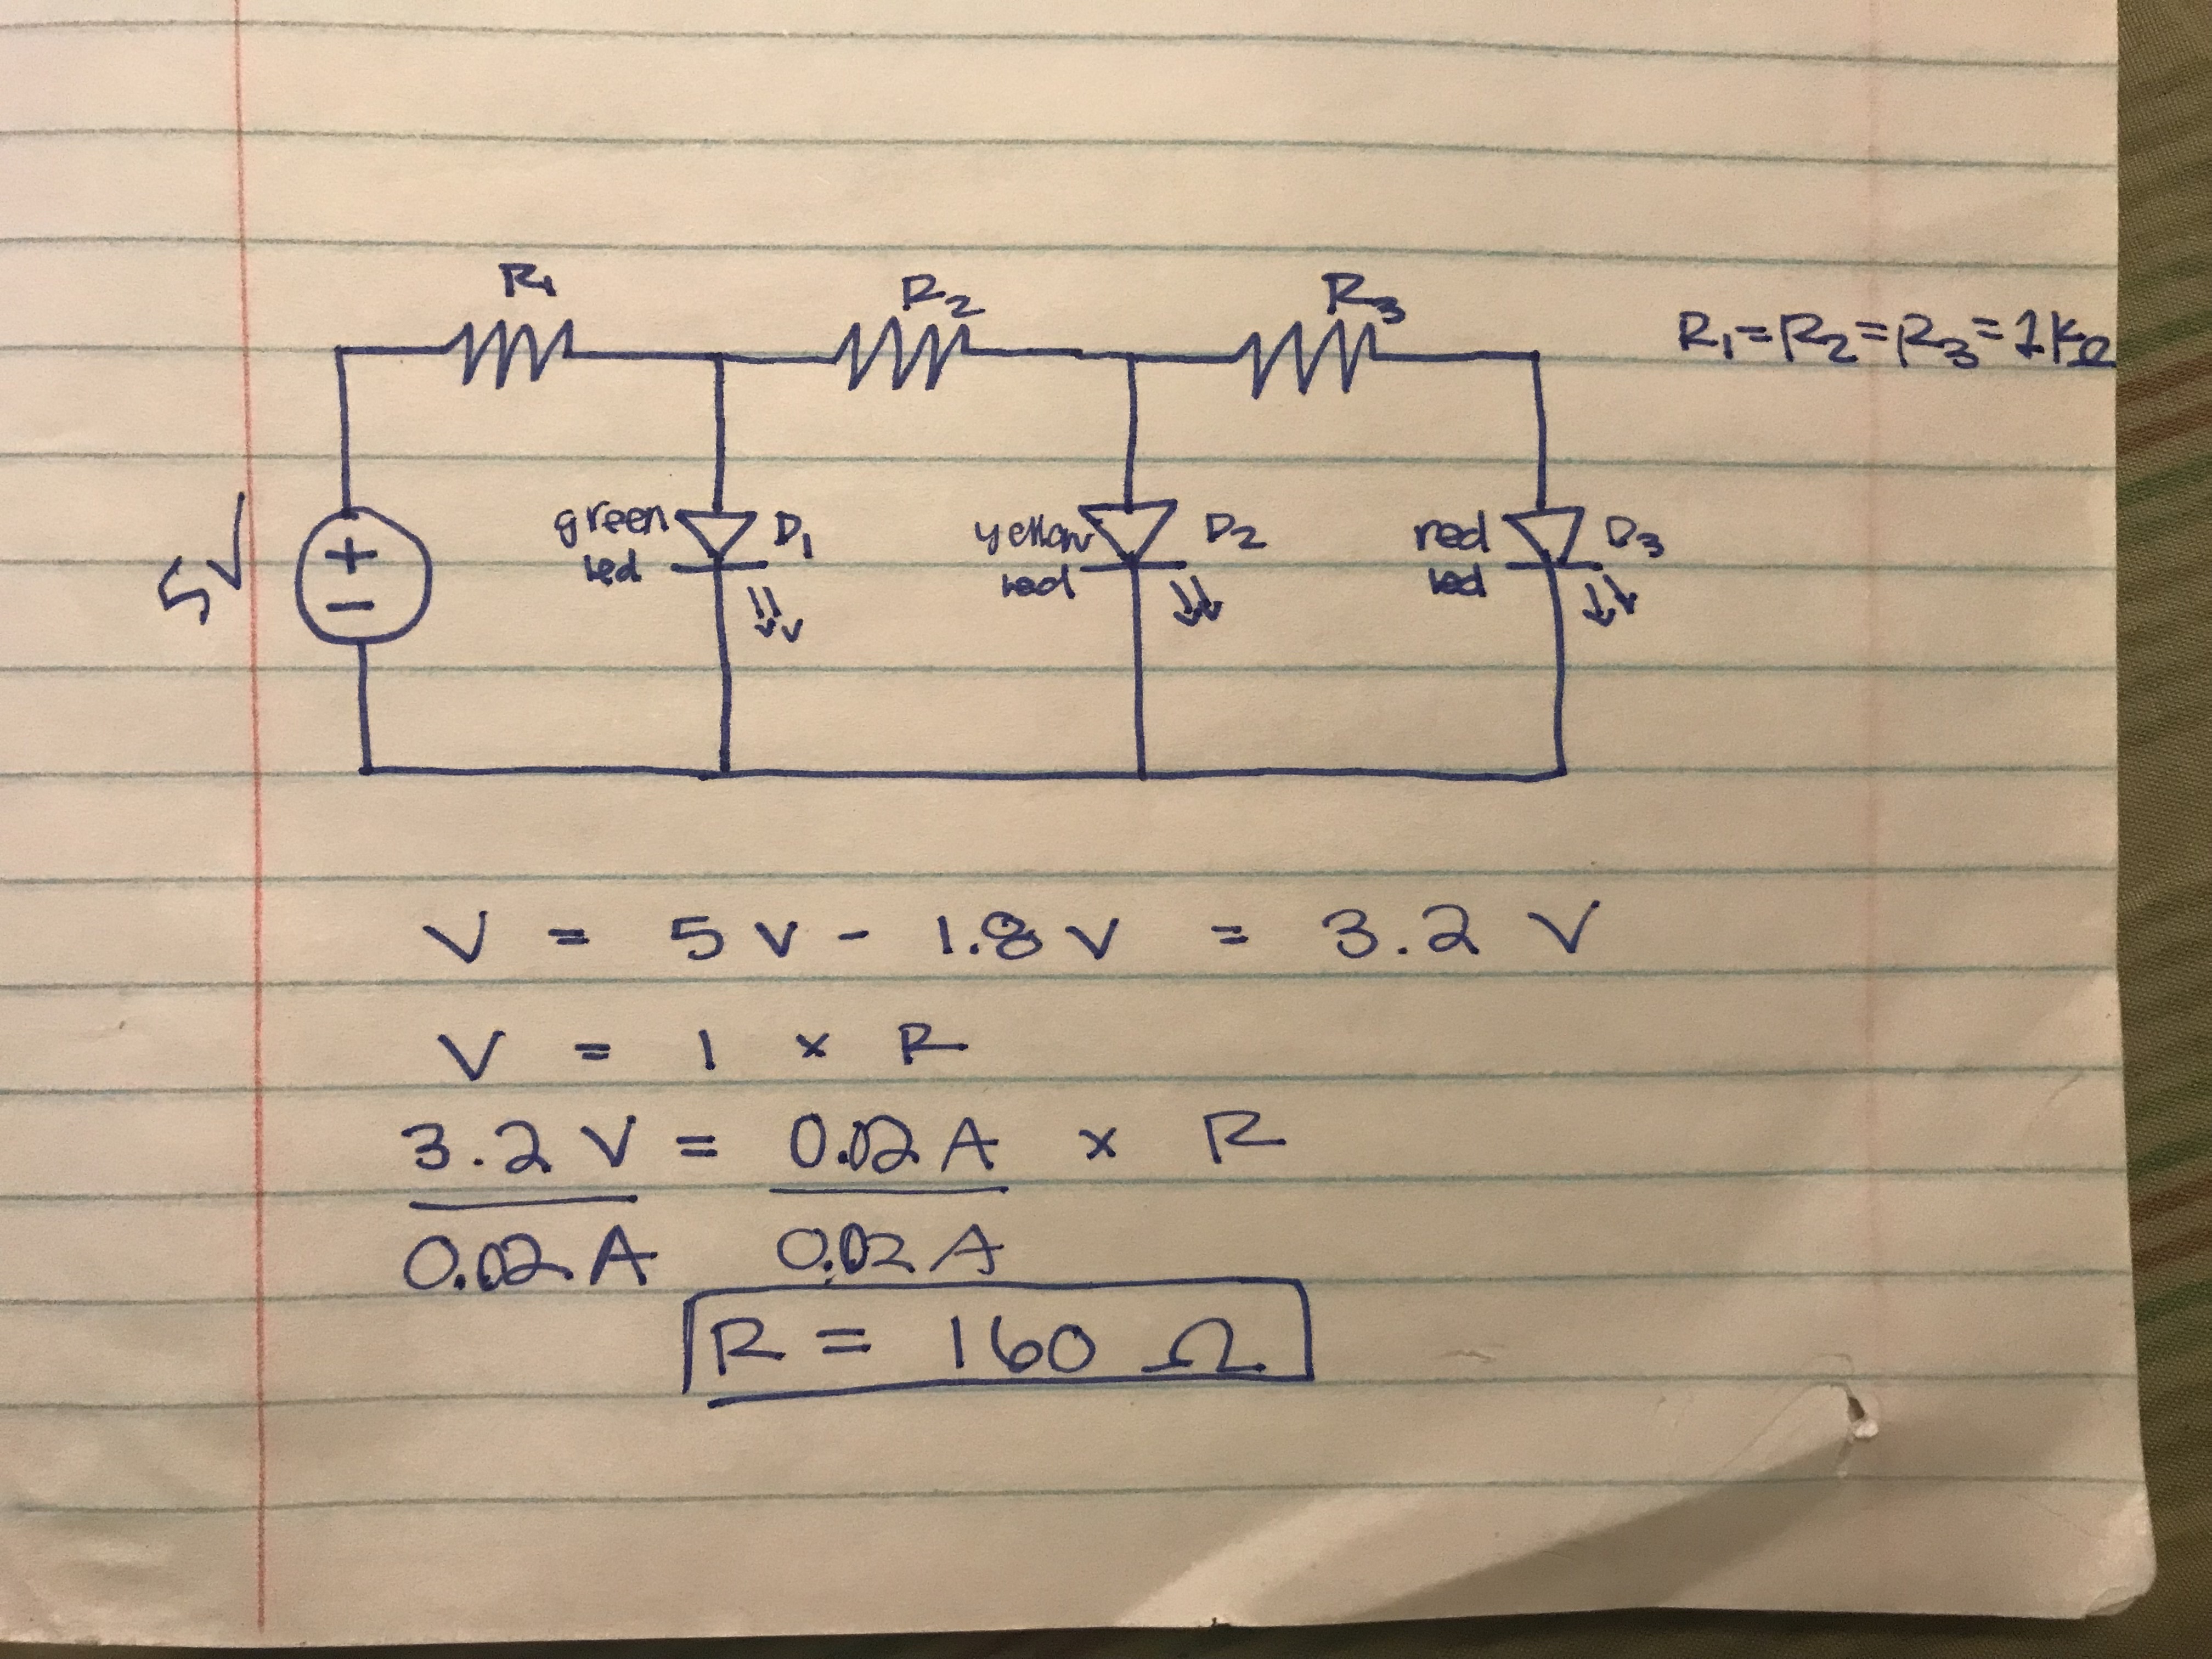 R1
R2
R3
R1=R2=R3=1KΩ
5V
+
−
green
led
D1
yellow
led
D2
red
led
D3
V = 5V - 1.8V = 3.2 V
V = I x R
3.2 V = 0.02 A x R
0.02 A 0.02 A
R = 160 Ω